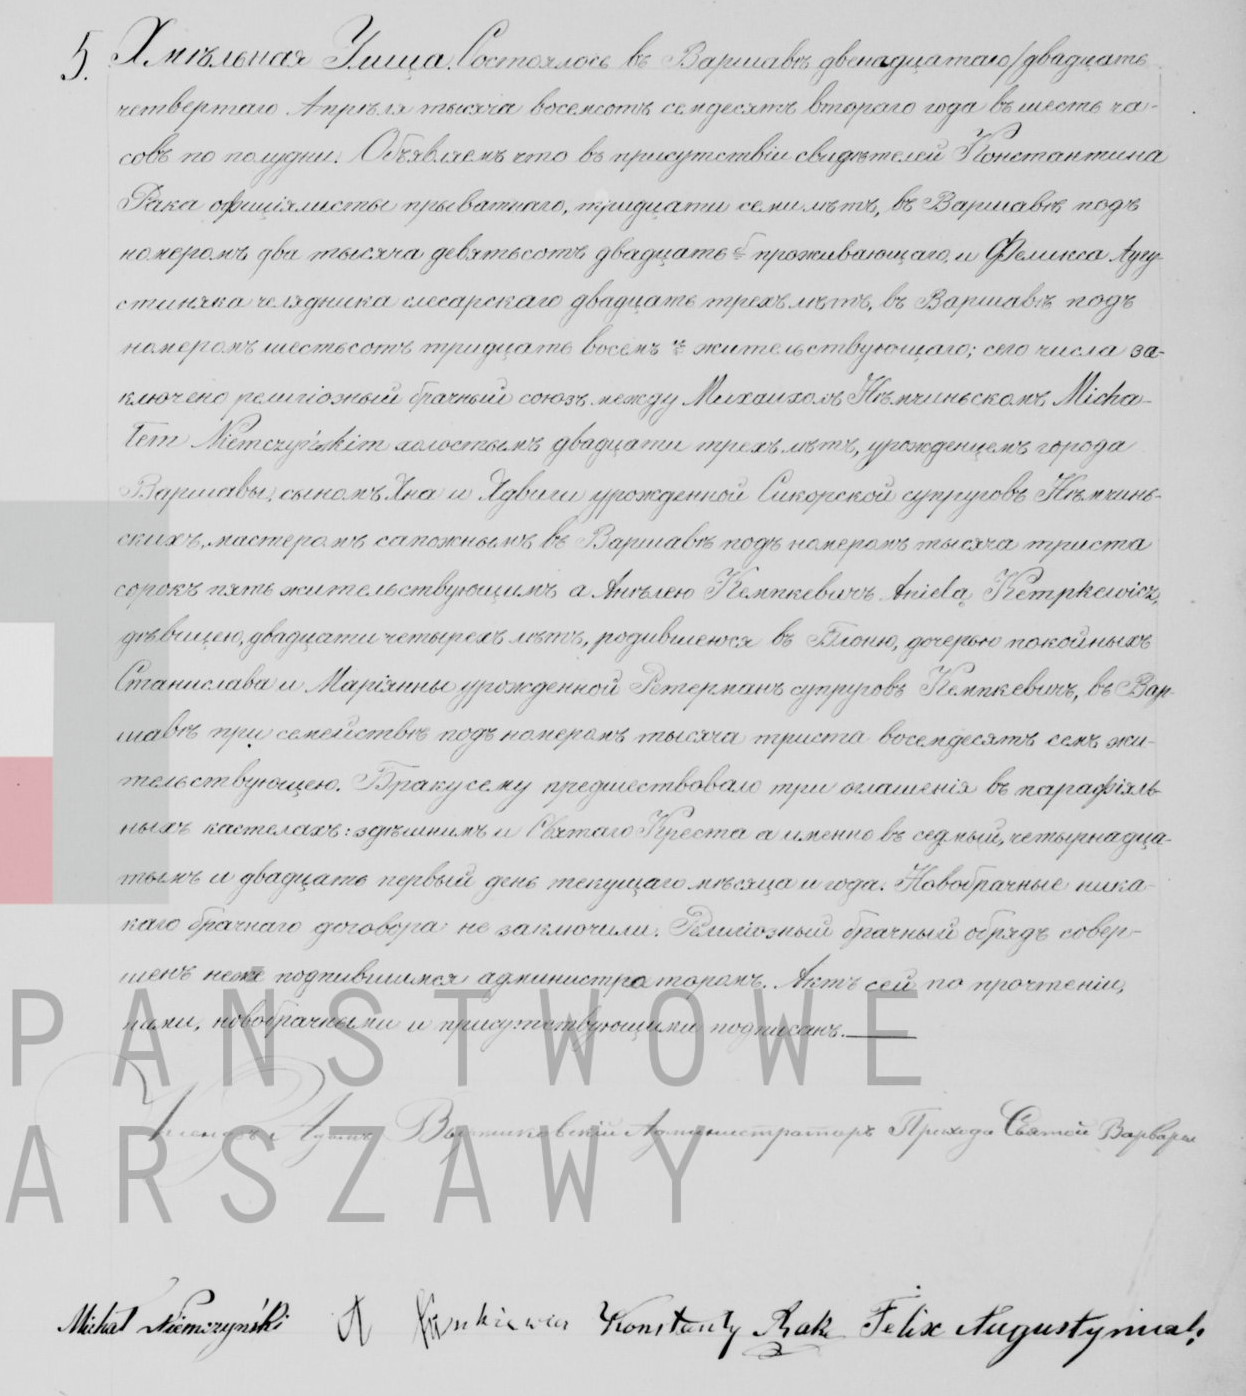 5. Хмѣльная Улица. Состоялось въ Варшавѣ двенадцатаго/двадцать
четвертаго Апрѣля тысяча восемсотъ семдесятъ втораго года въ шесть ча-
совъ по полудни. Объявляемъ что въ присутствіи свидѣтелей Константина
Рака официялисты прыватнаго, тридцати семи лѣтъ, въ Варшавѣ подъ
номеромъ два тысяча девятьсотъ двадцать б проживающаго, и Феликса Аугу-
стиняка челядника слесарскаго двадцать трехъ лѣтъ, въ Варшавѣ подъ
номеромъ шестьсотъ тридцать восемъ жительствующаго; сего числа за-
ключено религіозный брачный союзъ между Михаиломъ Нѣмчиньскомъ Micha-
łem Niemczyńskim холостымъ двадцати трехъ лѣтъ, урожденцемъ города
Варшавы, сыномъ Яна и Ядвиги урожденной Сикорской супруговъ Нѣмчинь-
скихъ, мастеромъ сапожнымъ въ Варшавѣ подъ номеромъ тысяча триста
сорокъ пять жительствующимъ а Анѣлею Кемпкевичъ Anielą Kempkewicz,
дѣвицею, двадцати четырехъ лѣтъ, родившеюся въ Блоню, дочерью покойныхъ
Станислава и Маріянны урожденной Ретерманъ супруговъ Кемпкевичъ, въ Вар-
шавѣ при семействѣ подъ номеромъ тысяча триста восемдесятъ семъ жи-
тельствующею. Браку сему предшествовало три оглашенія въ парафіяль-
ныхъ костелахъ: здѣшнимъ и Святаго Креста а именно въ седмый, четырнадца-
тымъ и двадцать первый день текущаго мѣсяца и года. Новобрачные ника-
каго брачнаго договора не заключили. Религіозный брачный обрядъ совер-
шенъ подписавшимся администраторомъ. Актъ сей по прочтеніи,
нами, новобрачными и присутствующими подписанъ.
PAŃSTWOWE
Ксендзъ Администраторъ Прихода Святой Варвары
ARSZAWY
Michał Niemczyński A Konstanty Rak Felix Augustyniak